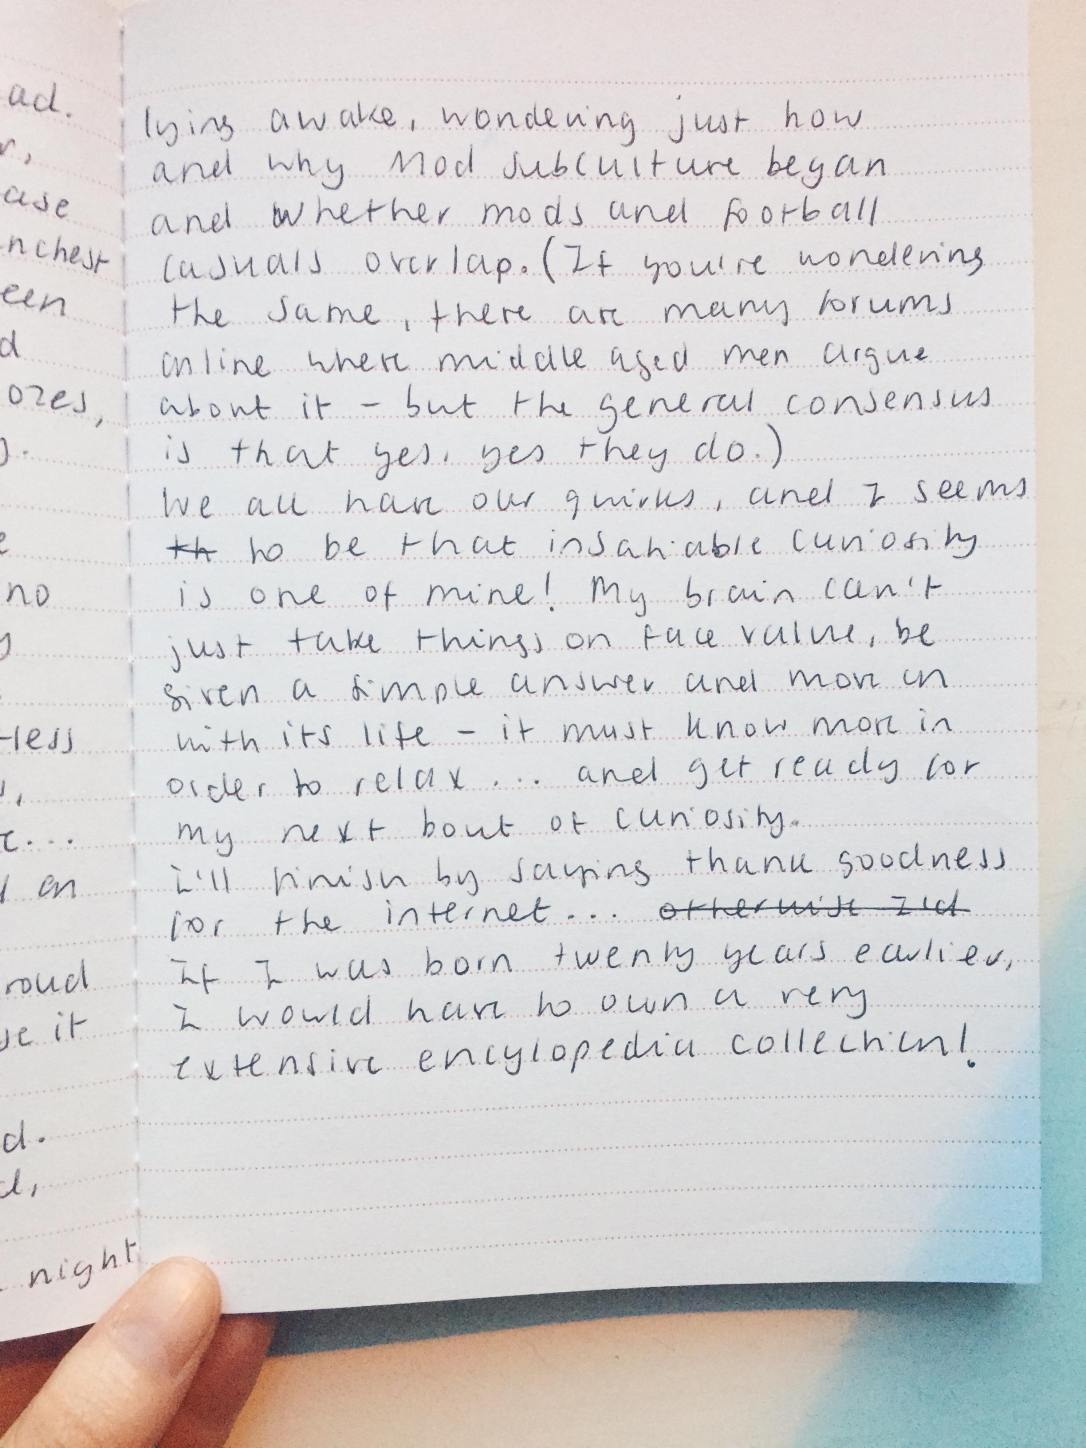 ad.
r,
ase
nchest
een
d
ozes,
).
e
no
y
-less
s,
c...
on
roud
se it
d.
d,
night
lying awake, wondering just how
and why Mod subculture began
and whether mods and football
casuals overlap. (If you're wondering
the same, there are many forums
online where middle aged men argue
about it - but the general consensus
is that yes, yes they do.)
We all have our quirks, and I seems
th to be that insatiable curiosity
is one of mine! My brain can't
just take things on face value, be
given a simple answer and move on
with its life - it must know more in
order to relax ... and get ready for
my next bout of curiosity.
I'll finish by saying thank goodness
for the internet... otherwise I'd
If I was born twenty years earlier,
I would have to own a very
extensive encylopedia collection!